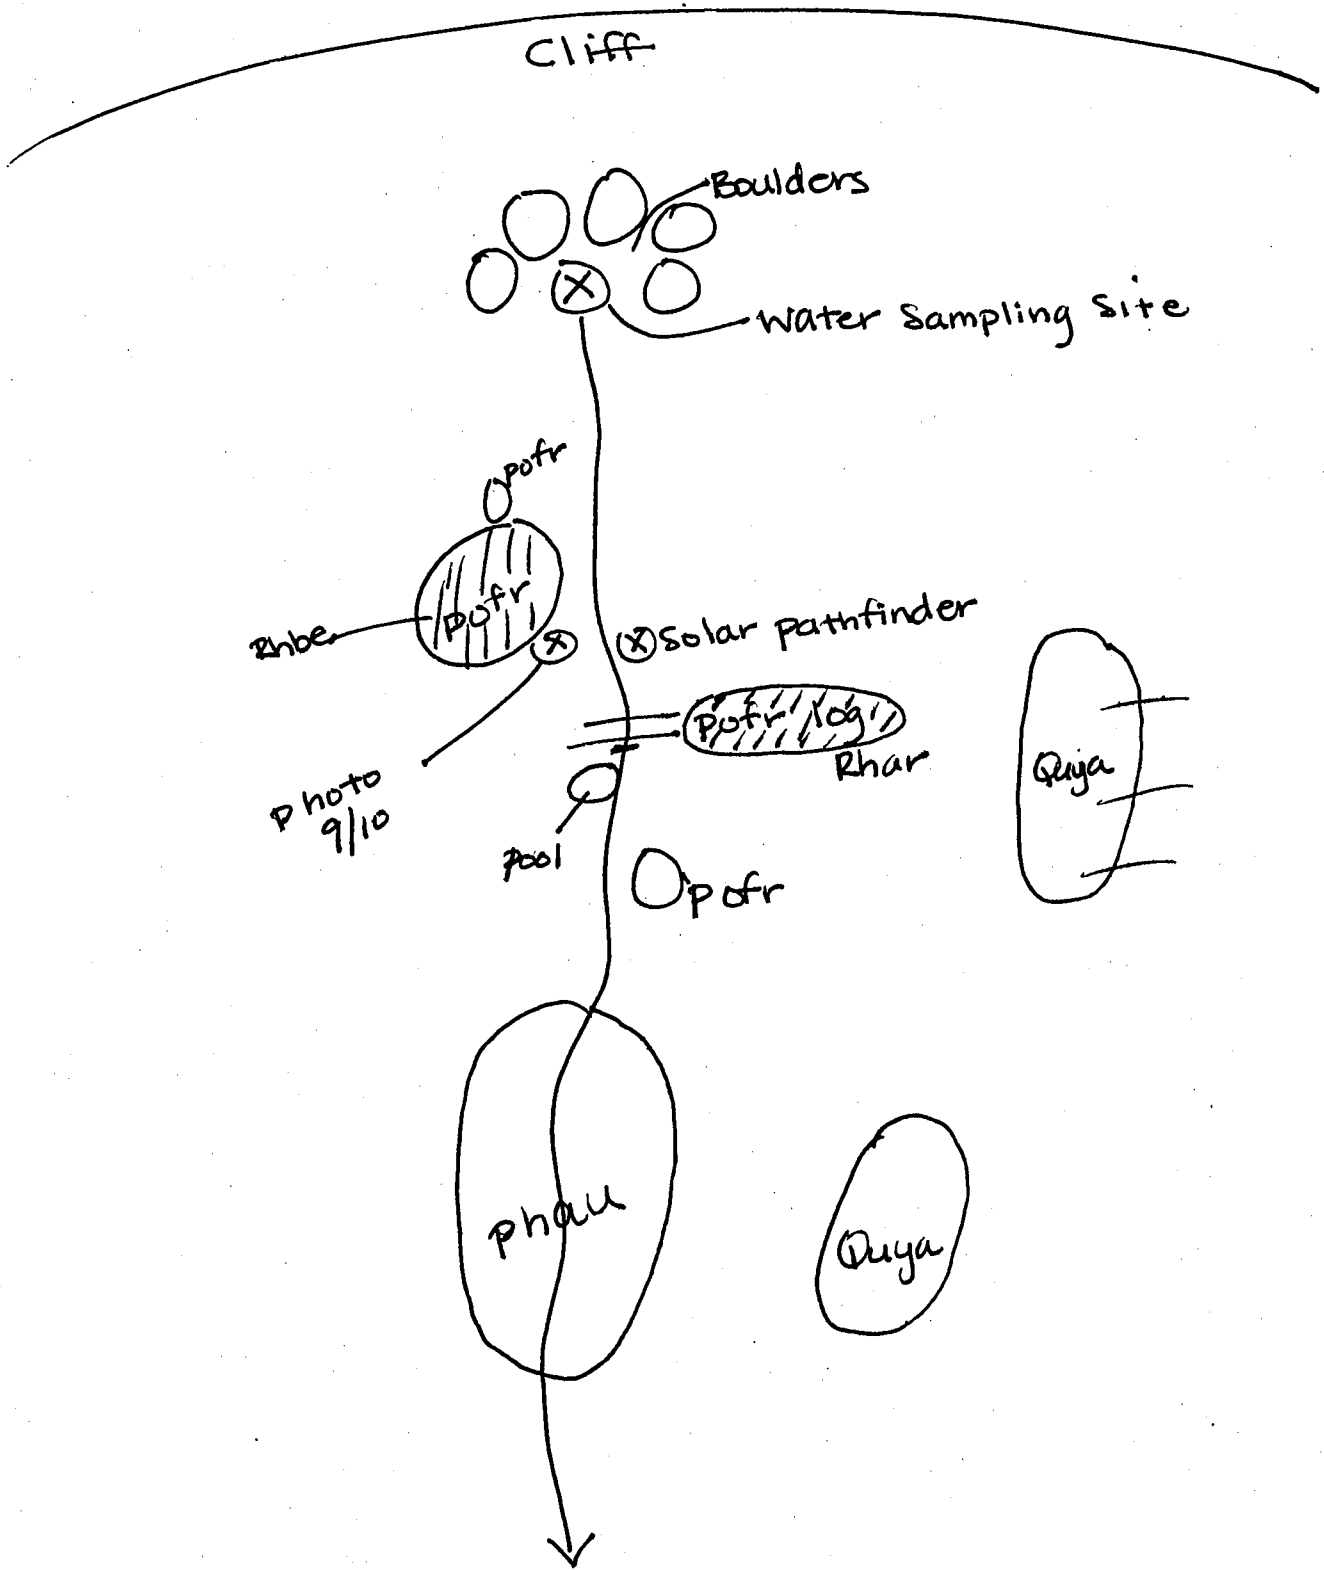 Cliff
Boulders
Water Sampling Site
pofr
pofr
Rhbe
Solar pathfinder
pofr log
Rhar
Quya
photo
9/10
pool
pofr
phau
Quya